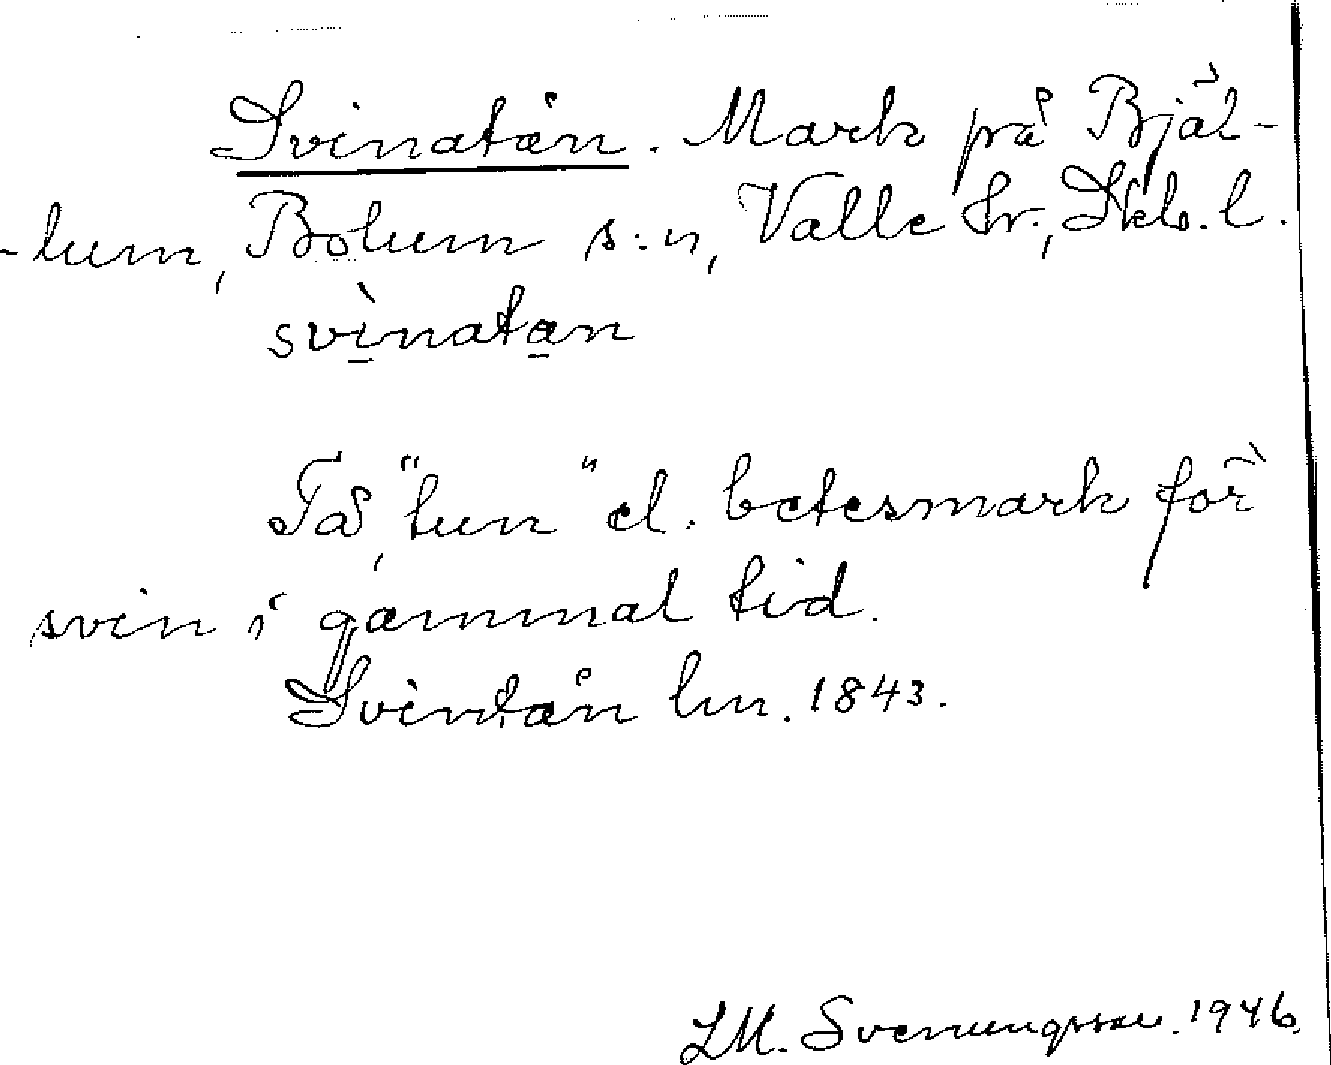 Svinatån. Mark på Bjäl-
-lum, Bolum s:n, Valle hr., Skb. l.
svìnatan
Tå, "tun" el. betesmark för
svin i gammal tid.
Svintån lm. 1843.
LM. Svenungsson. 1946.